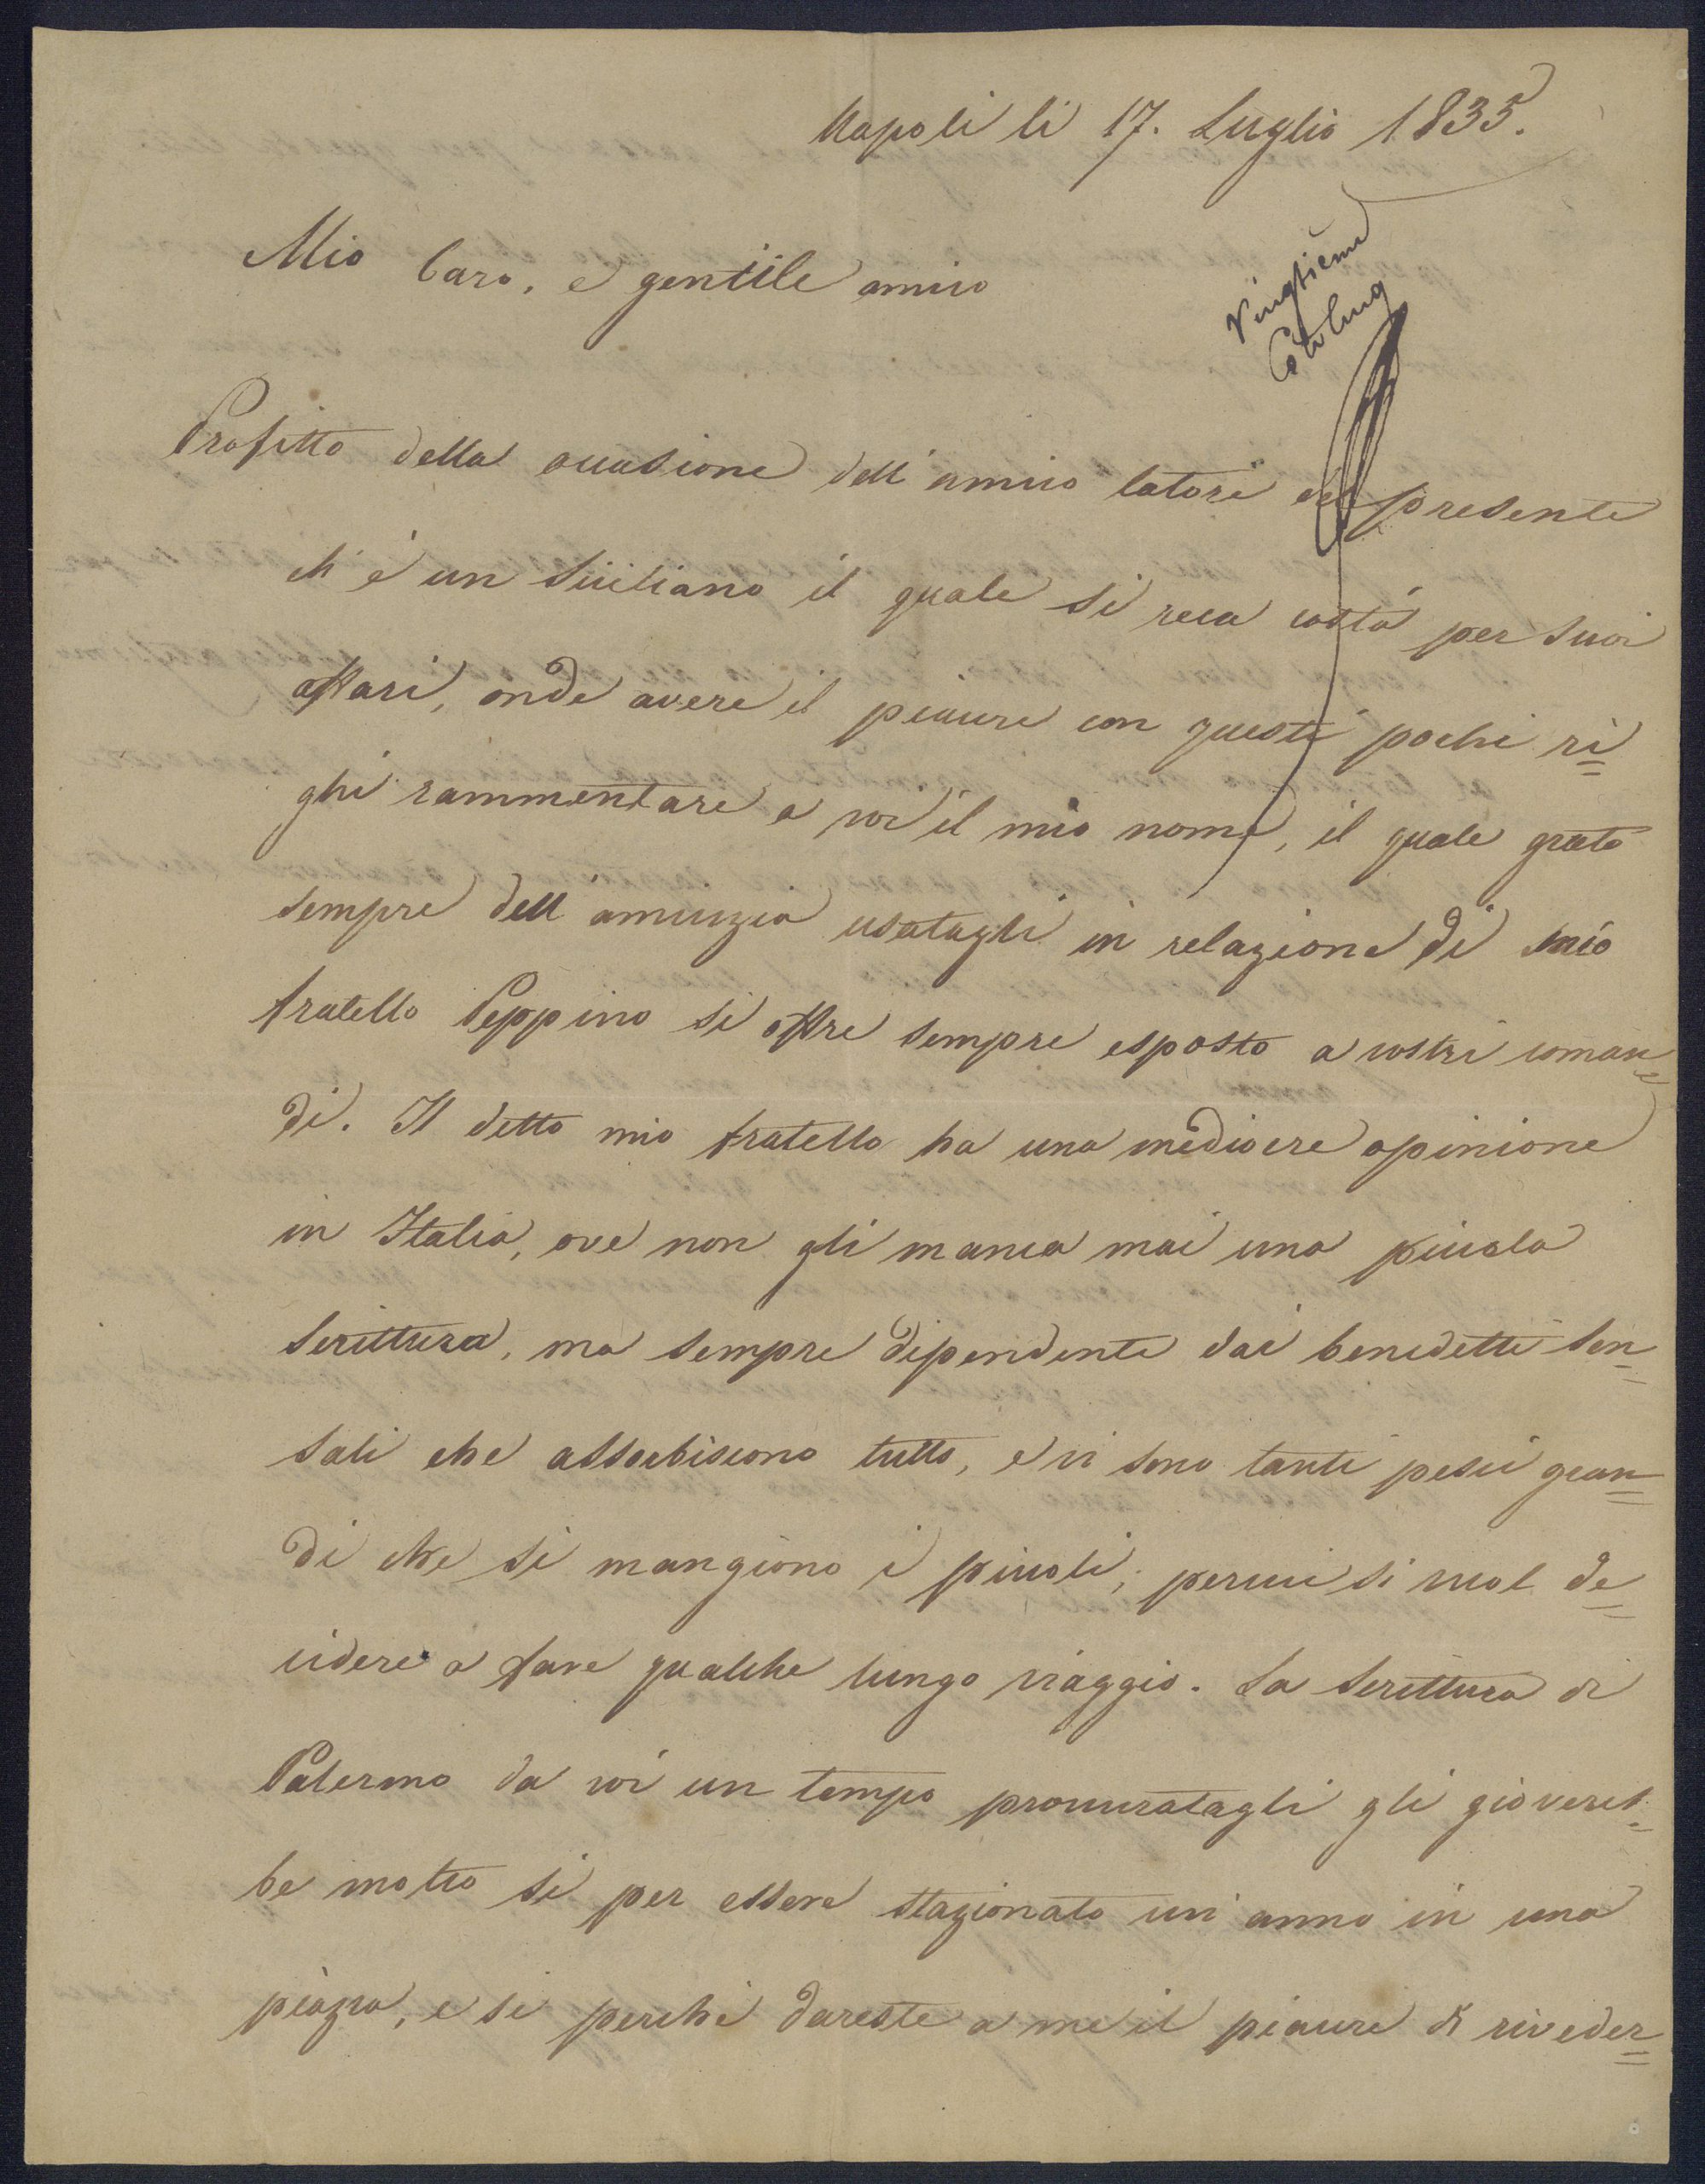 Napoli li 17. Luglio 1835.
Mio Caro, e gentile amico
Vingtieme
Profitto della occasione dell'amico latore del presente
ch'è un Siciliano il quale si reca costà per suoi
affari, onde avere il piacere con questi pochi ri=
ghi rammentare a voi il mio nome, il quale grato
sempre dell'amicizia usatagli in relazione di mio
fratello Peppino si offre sempre esposto a vostri coman=
di. Il detto mio fratello ha una mediocre opinione
in Italia, ove non gli manca mai una piccola
Scrittura, ma sempre dipendente dai benedetti Sen=
sali che assorbiscono tutto, e vi sono tanti pesci gran=
di che si mangiono i piccoli; percui si vuol de=
cidere a fare qualche lungo viaggio. La Scrittura di
Palermo da voi un tempo procuratagli gli giovereb=
be molto si per essere stazionato un anno in una
piazza, e si perchè dareste a me il piacere di riveder=